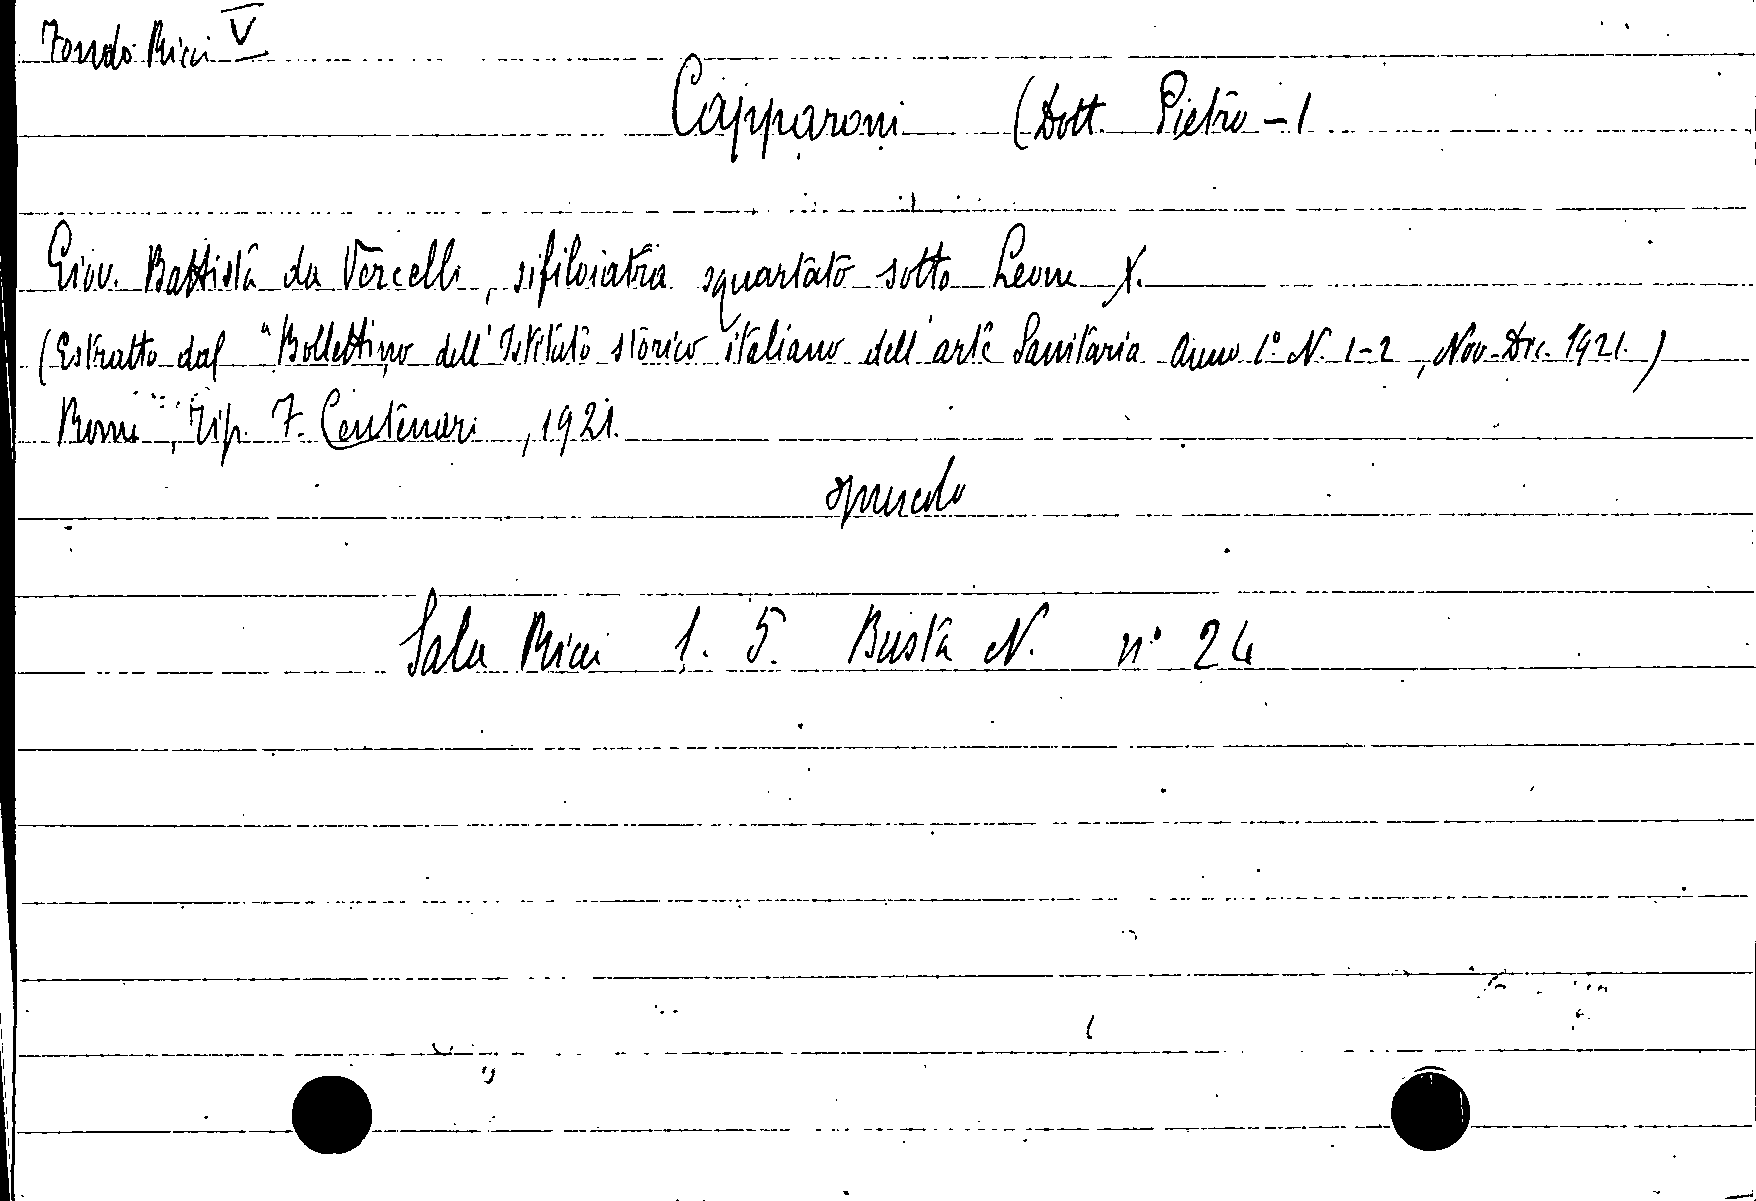 Fondo Ricci V
Capparoni (Dott. Pietro - )
Giov. Battista da Vercelli, sifiloiatra squartato sotto Leone X.
(Estratto dal "Bollettino dell'Istituto storico italiano dell'arte Sanitaria Anno 1° N. 1-2, Nov-Dic. 1921.)
Roma, Tip. F. Centenari, 1921.
opuscolo
Sala Ricci 1. 5. Busta N. n° 24